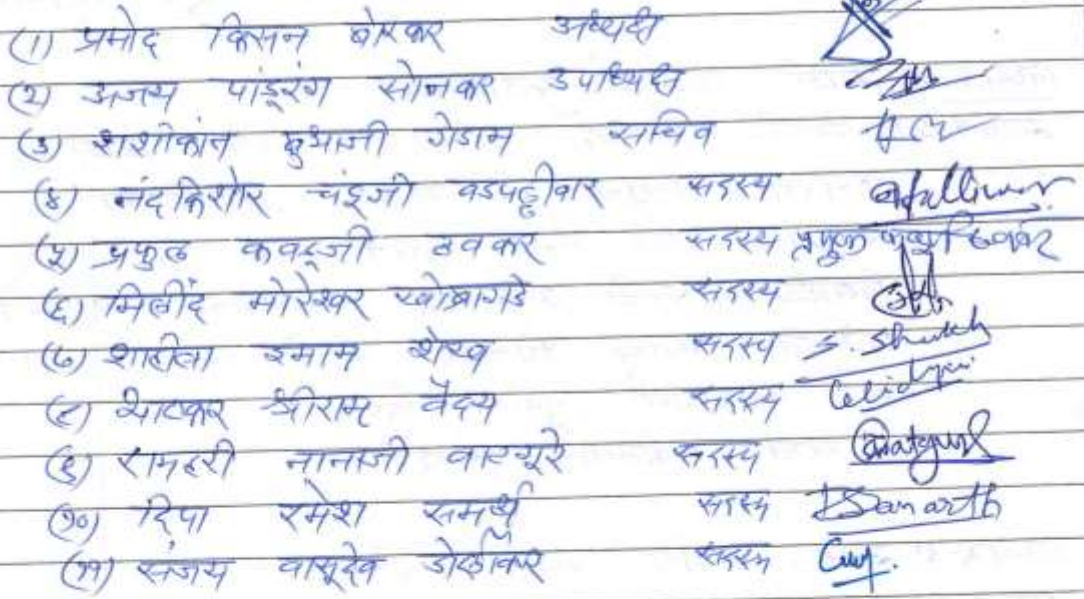 (१) प्रमोद किसन बोरकर अध्यक्ष
(२) अजय पांडूरंग सोनकर उपाध्यक्ष
(३) शशीकांत बुधाजी गेडाम सचिव
(४) नंदकिशोर चंद्रजी वडपल्लीवार सदस्य
(५) प्रफुल कवडूजी ठवकर सदस्य
(६) मिलींद मोरेश्वर खोब्रागडे सदस्य
(७) शाहीला इमाम शेख सदस्य S. Shaikh
(८) श्रीराम वैद्य सदस्य
(९) रामहरी नानाजी वाटगूरे सदस्य
(१०) दिपा रमेश समर्थ सदस्य DSamarth
(११) संजय वासूदेव सदस्य